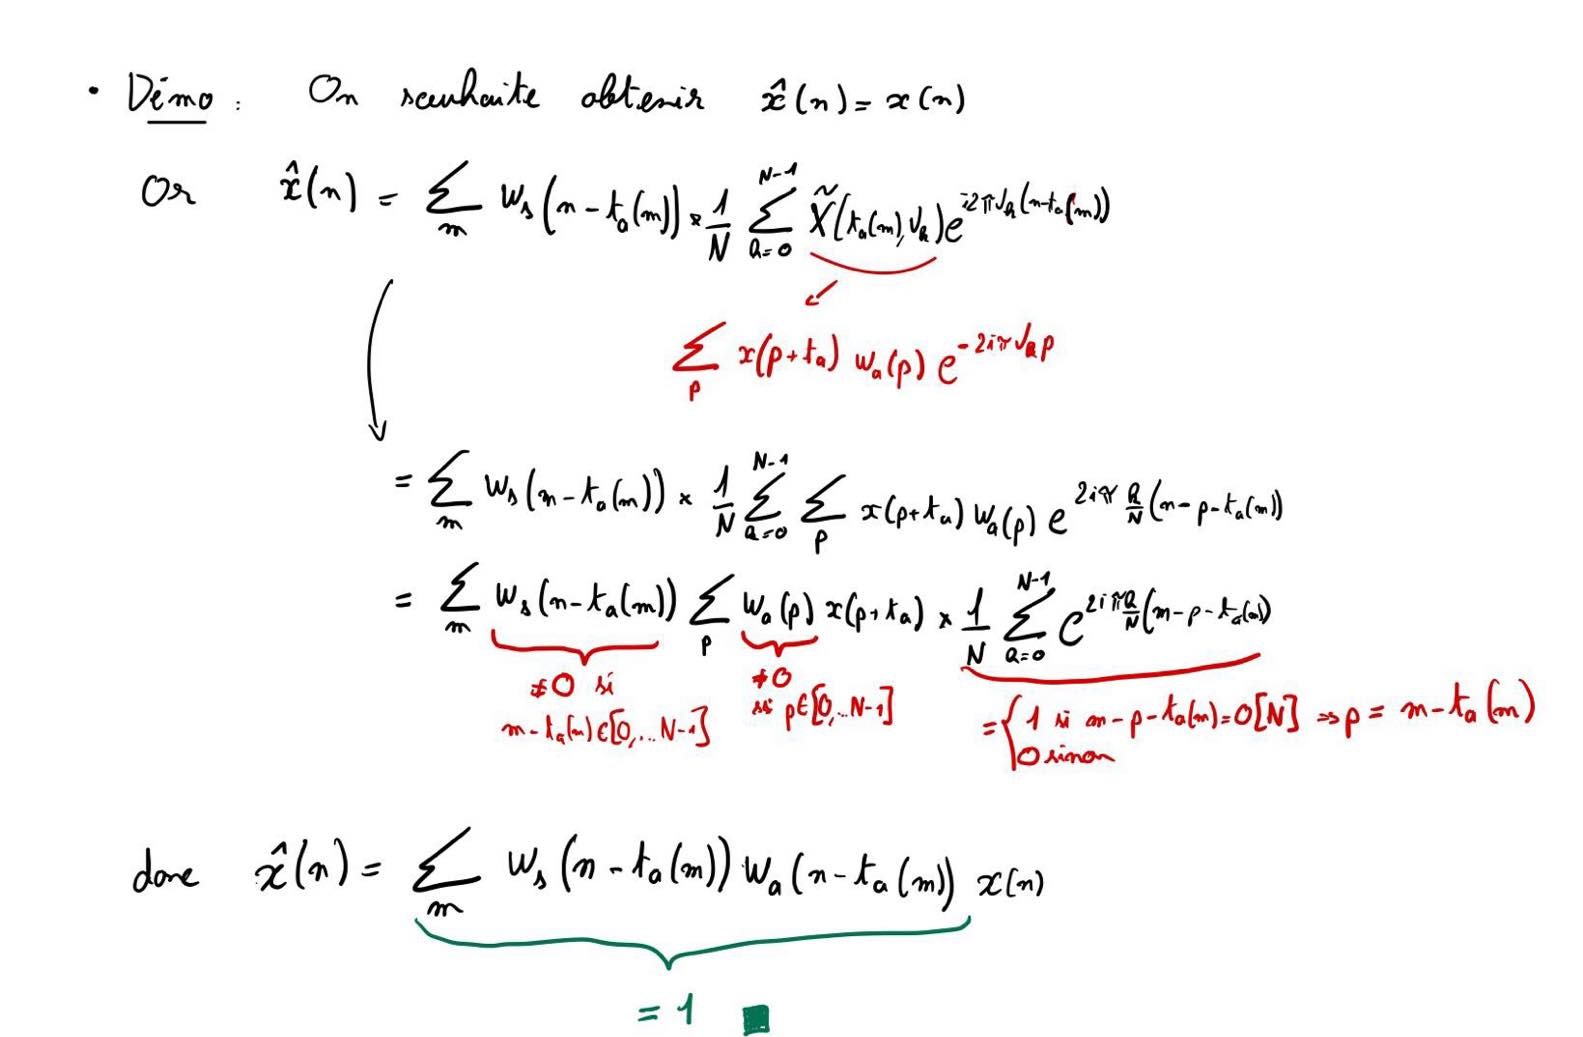 • Démo : On souhaite obtenir x̂(n) = x(n)
Or x̂(n) = ∑_m w_s(n - t_a(m)) × 1/N ∑_{k=0}^{N-1} X̃(t_a(m), ν_k) e^{i2πν_k(n-t_a(m))}
∑_p x(p+t_a) w_a(p) e^{-2iπν_k p}
= ∑_m w_s(n - t_a(m)) × 1/N ∑_{k=0}^{N-1} ∑_p x(p+t_a) w_a(p) e^{2iπ k/N (n-p-t_a(m))}
= ∑_m w_s(n - t_a(m)) ∑_p w_a(p) x(p+t_a) × 1/N ∑_{k=0}^{N-1} e^{2iπ k/N (n-p-t_a(m))}
≠0 si
n - t_a(m) ∈ [0,...N-1]
≠0
si p ∈ [0,...N-1]
= { 1 si n-p-t_a(m) = 0[N] ⇒ p = n - t_a(m)
0 sinon
donc x̂(n) = ∑_m w_s(n - t_a(m)) w_a(n - t_a(m)) x(n)
= 1 ■